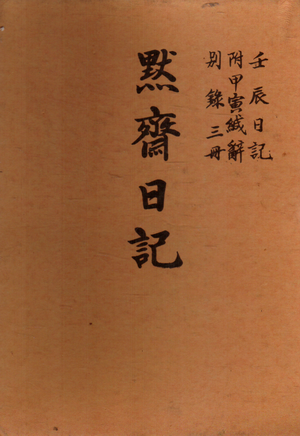 壬辰日記
附甲寅緘辭
別錄三冊
默齋日記